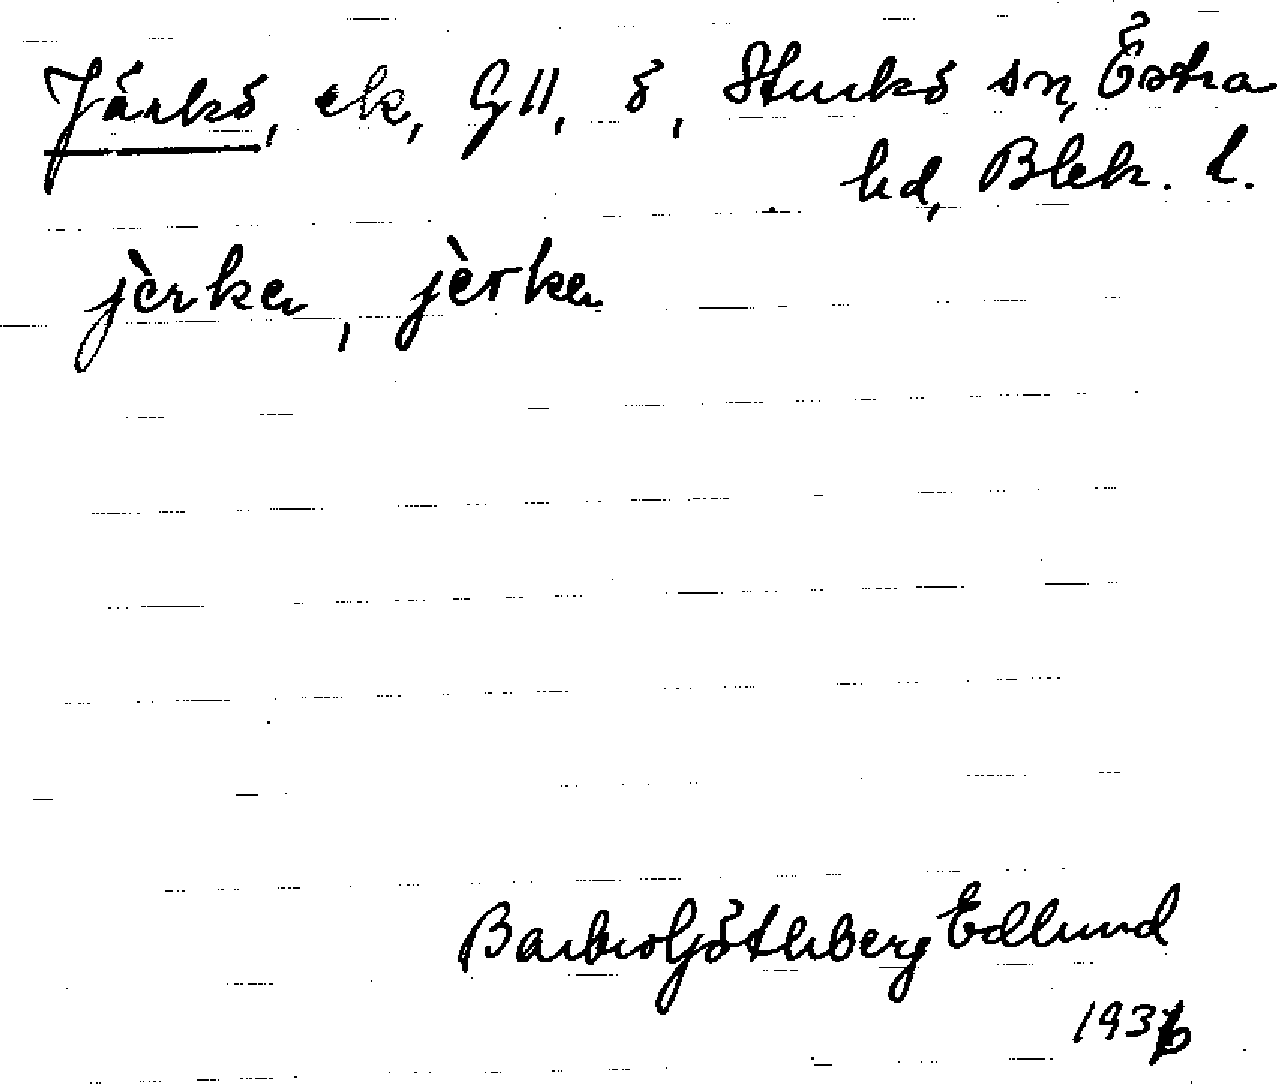 Järkö, ek, G11, ö, Sturkö sn, Östra
hd, Blek. l.
jèrka, jèrka
Barbro Götherberg Edlund
1936